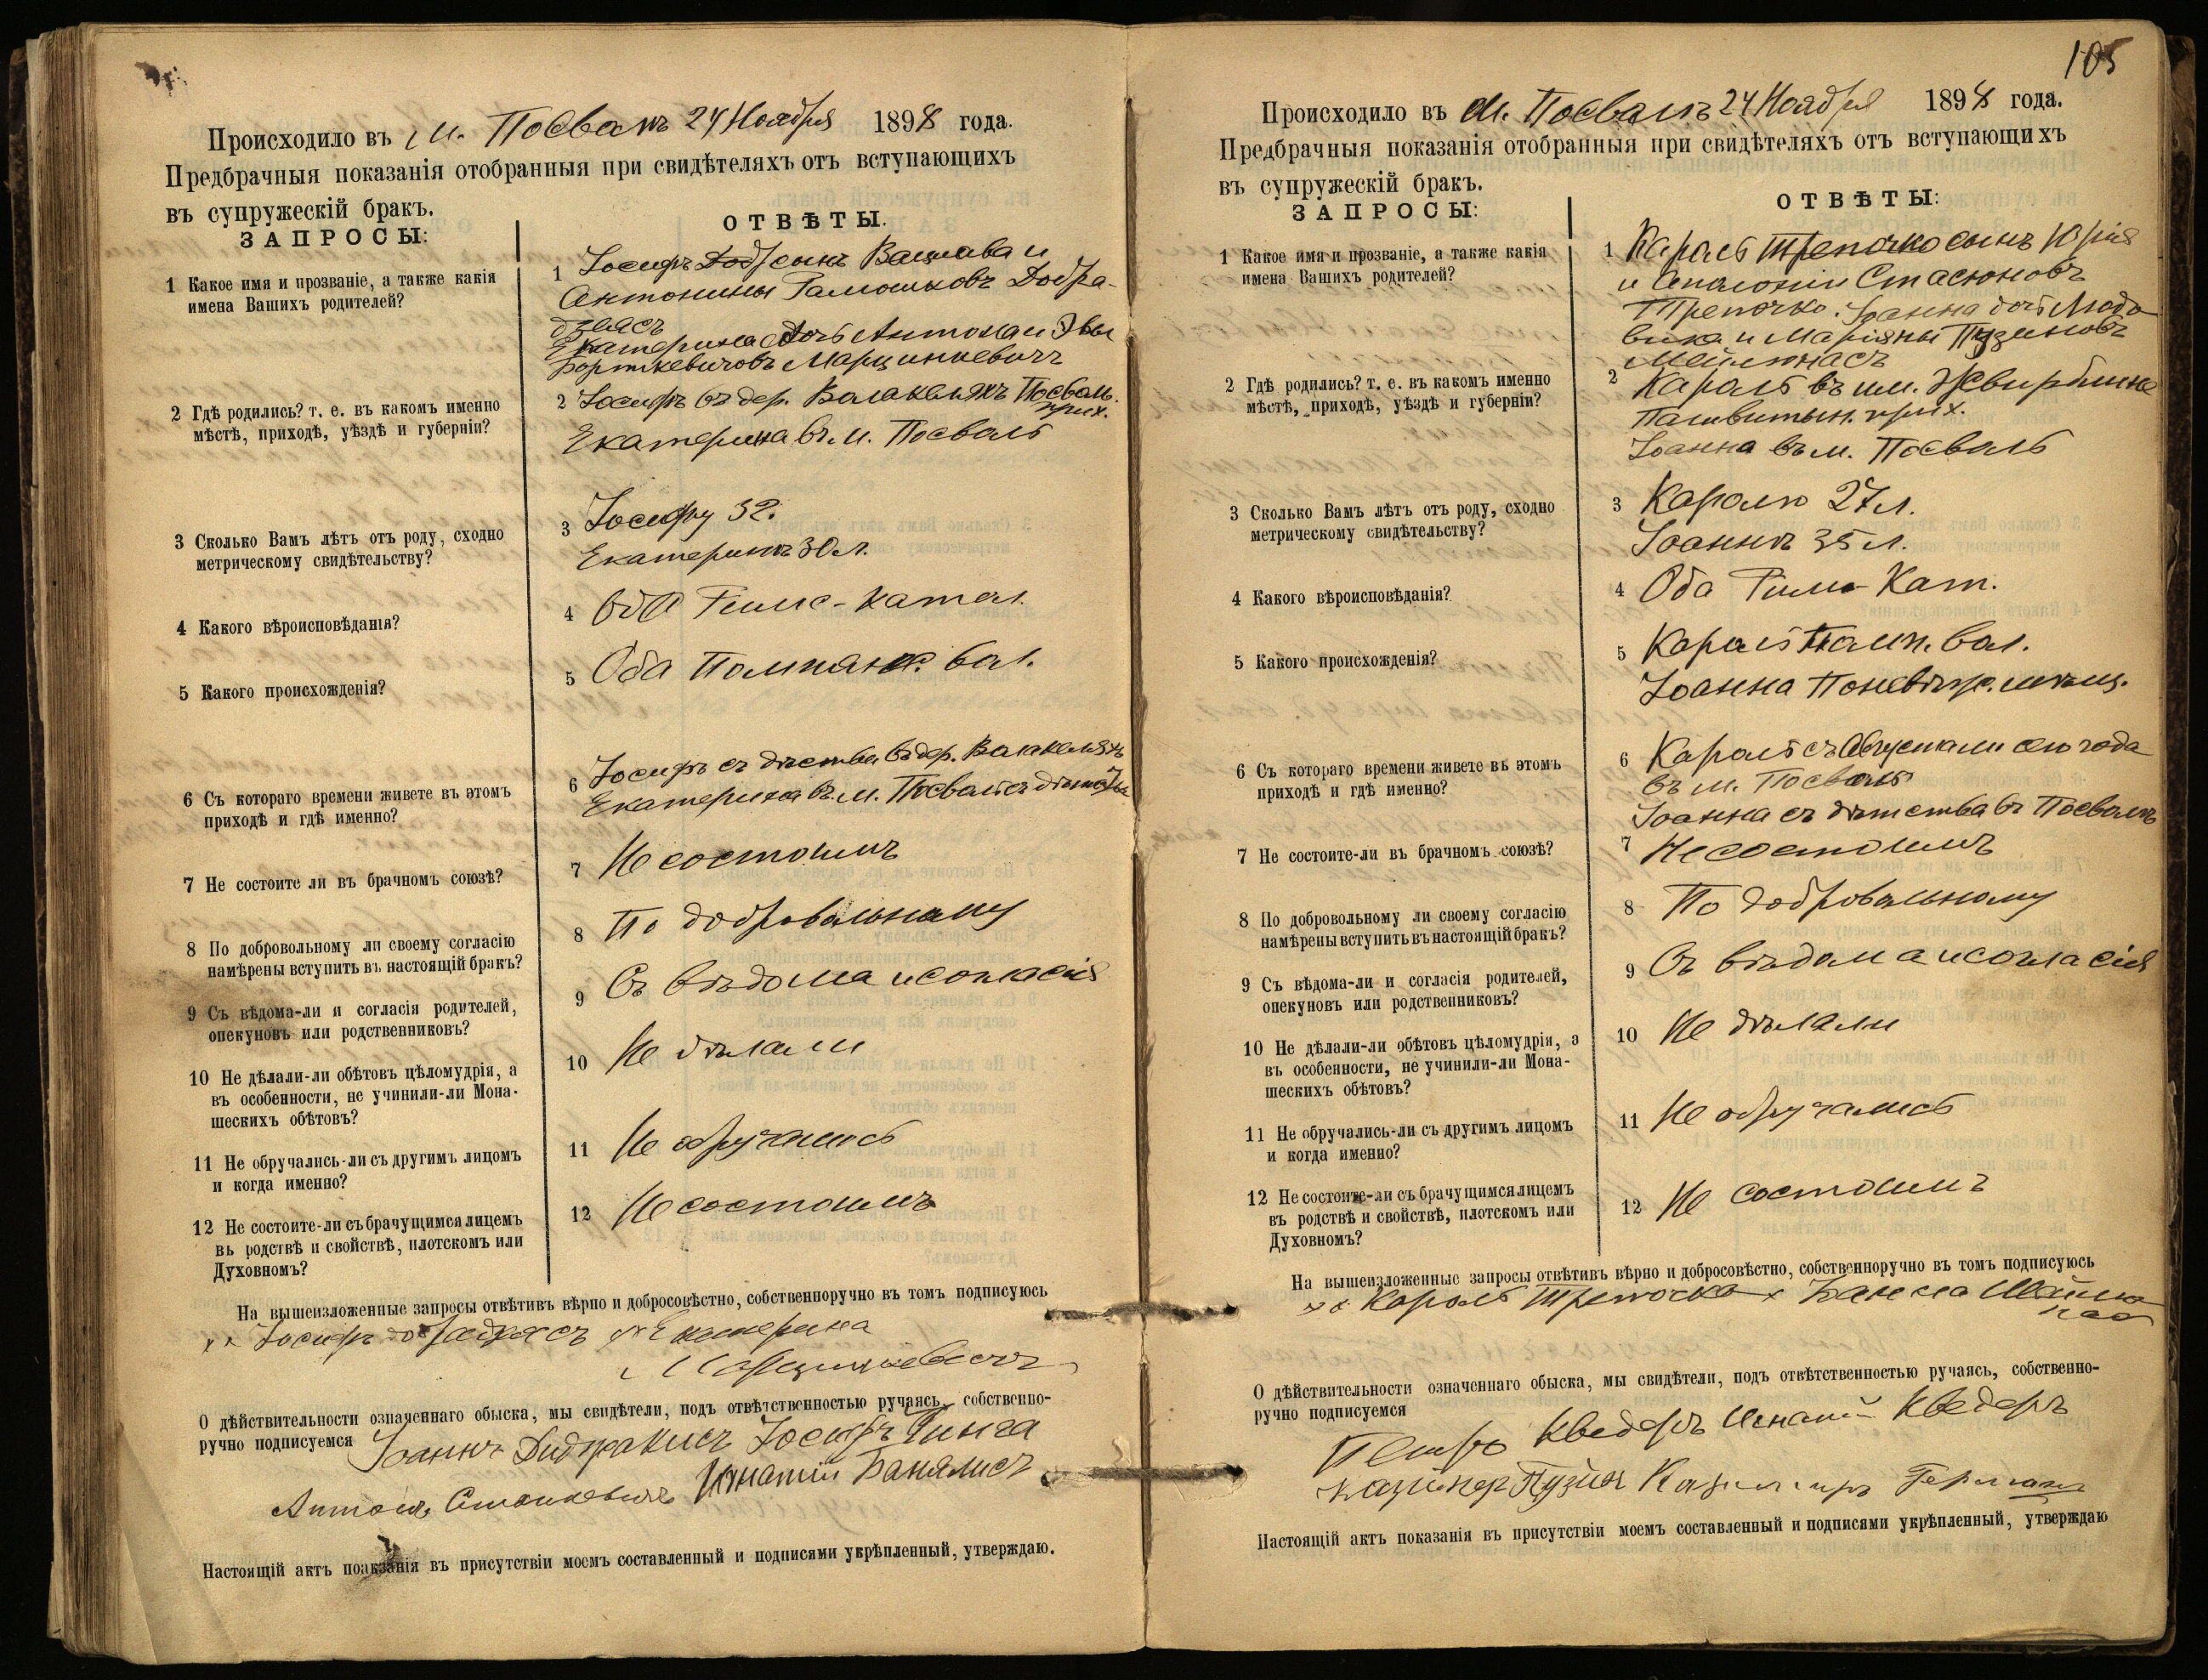 Происходило въ м. Посвалѣ 24 Ноября 1898 года.
Предбрачныя показанія отобранныя при свидѣтеляхъ отъ вступающихъ
въ супружескій бракъ.
ЗАПРОСЫ:
ОТВѢТЫ.
1 Какое имя и прозваніе, а также какія
имена Вашихъ родителей?
1 Іосифъ сынъ Вацлава и
Антонины
Екатерина дочь Антона и Эвы
Марцинкевичъ
2 Гдѣ родились? т. е. въ какомъ именно
мѣстѣ, приходѣ, уѣздѣ и губерніи?
2 Іосифъ въ дер. Посваль.
прих.
Екатерина въ м. Посваль
3 Сколько Вамъ лѣтъ отъ роду, сходно
метрическому свидѣтельству?
3 Іосифу 32.
Екатеринѣ 30 л.
4 Какого вѣроисповѣданія?
4 Оба Римс-Катол.
5 Какого происхожденія?
5 Оба вол.
6 Съ котораго времени живете въ этомъ
приходѣ и гдѣ именно?
6 Іосифъ съ дѣтства въ дер.
Екатерина въ м. Посваль съ дѣтства
7 Не состоите ли въ брачномъ союзѣ?
7 Не состоимъ
8 По добровольному ли своему согласію
намѣрены вступить въ настоящій бракъ?
8 По добровольному
9 Съ вѣдома-ли и согласія родителей,
опекуновъ или родственниковъ?
9 Съ вѣдома и согласія
10 Не дѣлали-ли обѣтовъ цѣломудрія, а
въ особенности, не учинили-ли Мона-
шескихъ обѣтовъ?
10 Не дѣлали
11 Не обручались-ли съ другимъ лицомъ
и когда именно?
11 Не обручались
12 Не состоите-ли съ брачущимся лицемъ
въ родствѣ и свойствѣ, плотскомъ или
Духовномъ?
12 Не состоимъ
На вышеизложенные запросы отвѣтивъ вѣрно и добросовѣстно, собственноручно въ томъ подписуюсь
Іосифъ Екатерина
Марцинкевичъ
О дѣйствительности означеннаго обыска, мы свидѣтели, подъ отвѣтственностью ручаясь, собственно-
ручно подписуемся Іоаннъ Іосифъ
Антонъ Игнатій
Настоящій актъ показанія въ присутствіи моемъ составленный и подписями укрѣпленный, утверждаю.
105
Происходило въ м. Посвалѣ 24 Ноября 1898 года.
Предбрачныя показанія отобранныя при свидѣтеляхъ отъ вступающихъ
въ супружескій бракъ.
ЗАПРОСЫ:
ОТВѢТЫ:
1 Какое имя и прозваніе, а также какія
имена Вашихъ родителей?
1 Кароль Трепочко сынъ Юрія
и Аполоніи Стасюновъ
Трепочко. Іоанна дочь Людо
вика и Маріяны Пузиновъ
2 Гдѣ родились? т. е. въ какомъ именно
мѣстѣ, приходѣ, уѣздѣ и губерніи?
2 Кароль въ им.
прих.
Іоанна въ м. Посваль
3 Сколько Вамъ лѣтъ отъ роду, сходно
метрическому свидѣтельству?
3 Каролю 27 л.
Іоаннѣ 35 л.
4 Какого вѣроисповѣданія?
4 Оба Римс Кат.
5 Какого происхожденія?
5 Кароль вол.
Іоанна Поневѣж. мѣщ.
6 Съ котораго времени живете въ этомъ
приходѣ и гдѣ именно?
6 Кароль съ сего года
въ м. Посваль
Іоанна съ дѣтства въ Посвалѣ
7 Не состоите-ли въ брачномъ союзѣ?
7 Не состоимъ
8 По добровольному ли своему согласію
намѣрены вступить въ настоящій бракъ?
8 По добровольному
9 Съ вѣдома-ли и согласія родителей,
опекуновъ или родственниковъ?
9 Съ вѣдома и согласія
10 Не дѣлали-ли обѣтовъ цѣломудрія, а
въ особенности, не учинили-ли Мона-
шескихъ обѣтовъ?
10 Не дѣлали
11 Не обручались-ли съ другимъ лицомъ
и когда именно?
11 Не обручались
12 Не состоите-ли съ брачущимся лицемъ
въ родствѣ и свойствѣ, плотскомъ или
Духовномъ?
12 Не состоимъ
На вышеизложенные запросы отвѣтивъ вѣрно и добросовѣстно, собственноручно въ томъ подписуюсь
Кароль
О дѣйствительности означеннаго обыска, мы свидѣтели, подъ отвѣтственностью ручаясь, собственно-
ручно подписуемся
Петръ Кведеръ Игнатій Кведеръ
Пузин Казимиръ
Настоящій актъ показанія въ присутствіи моемъ составленный и подписями укрѣпленный, утверждаю